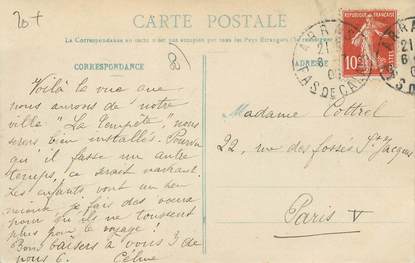 20 +
CARTE POSTALE
La Correspondance au recto n'est pas acceptée par tous les Pays Étrangers
CORRESPONDANCE
RÉPUBLIQUE FRANÇAISE
10
21
PAS DE CALAIS
21
Voilà la vue que
nous aurons de notre
ville "La Tempête", nous
serons bien installés. Pourvu
qu'il fasse un autre
temps, ce serait
Les enfants vont un peu
mieux je fais des vœux
pour qu'ils ne toussent
plus pour le voyage!
Bons baisers à vous 3 de
nous 6. Céline
Madame Cottrel
22, rue des fossés St Jacques
Paris V